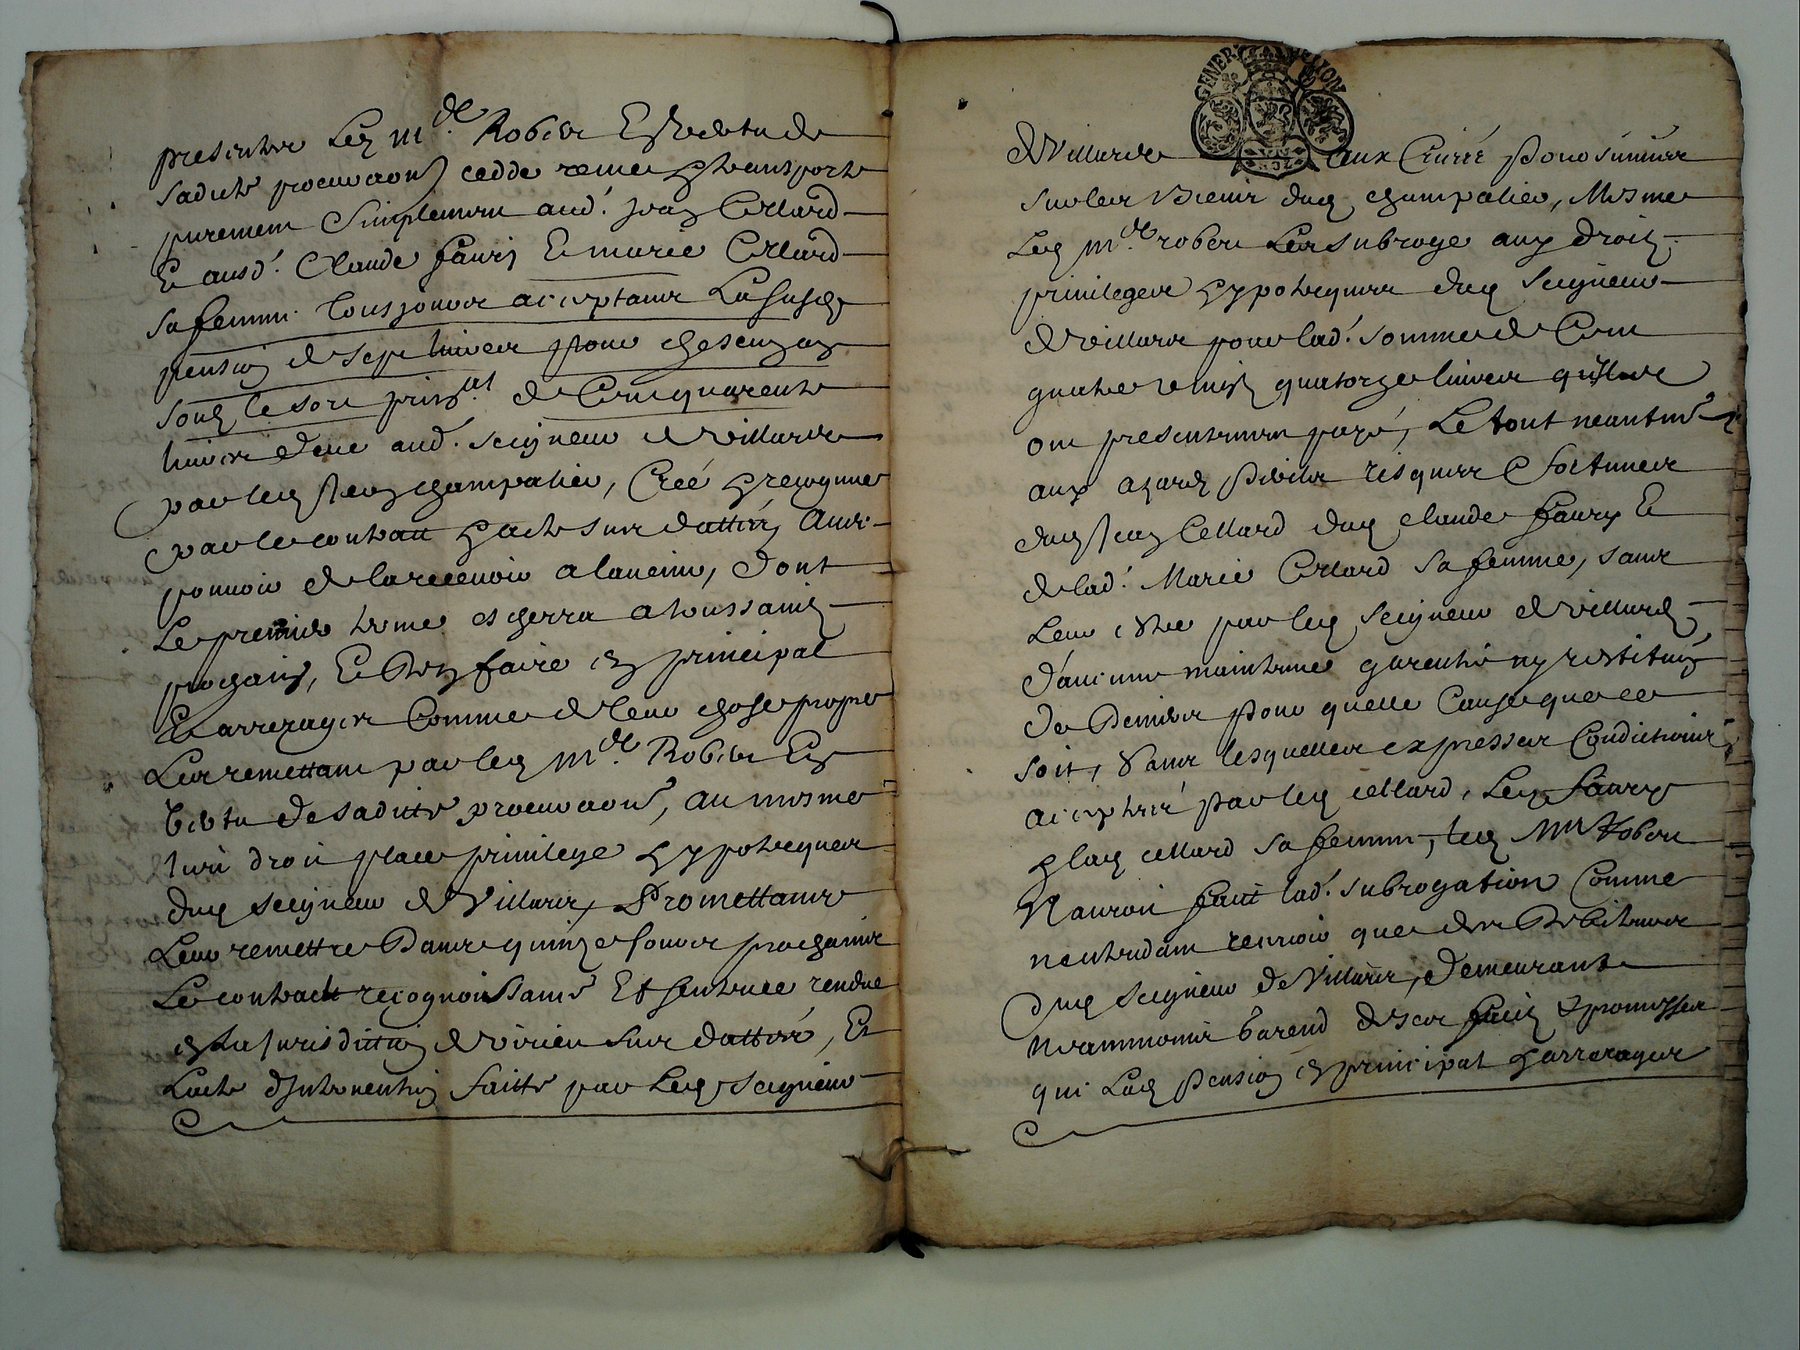 presentes Led. mde. Robert En vertu de
sadicte procuraon, cedde remet & transporte
purement Simplement aud. Jean Cellard
Et ausd. Claude faury Et marie Cellard
sa femme. tous jouir acceptans La susd.
pension de sept livres pour chescung an
soubz le sort prinal de Cent quarente
livres deue aud. seigneur de Villards
par led. Jean champalier, Créé & recognue
par le contract & actes sus dattés, Avec
pouvoir de la recevoir a lavenir, dont
Le premier terme escherra a toussaincts
prochain, Et den faire en principal
Et arrerages Comme de leur chose propre
Les remettant par led. mde. Robert En
Vertu de sa ditte procuraon, au mesme
lieu droit place privilege & ypoteques
dud. seigneur de Villars, Promettant
Leur remettre Dans quinze jours prochains
Le contract recognoissans Et sentence rendue
en La Jurisdiction de virieu sus datté, Et
Lacte dIntervention faitte par Led. seigneur
de Villards aux Criées poursuivies
sur les biens dud. champalier, Mesme
Led. mde. robert Les subroge aux droits
privileges & ypoteques dud. seigneur
de villars pour lad. somme de Cent
quatre vingt quatorze livres quils
ont presentement payé, Le tout neantms.
aux azards perils risques & fortunes
dud. Jean Cellard dud. claude faury Et
de lad. Marie Cellard sa femme, sans
Leur estre par led. seigneur de villards
daucune maintenue garentie ny restitution
de Deniers pour quelle Cause que ce
soit, sans lesquelles expresses Condictions
acceptées par led. cellard, Led. faury
& lad. cellard sa femme, led. Mre Robert
Nauroit fait lad. subrogation Comme
nentendant recevoir que des Debiteurs
dud. seigneur de Villars, demeurants
neanmoins tenud de ses faits & promesses
qui Lad. pension en principal & arrerages
GENER